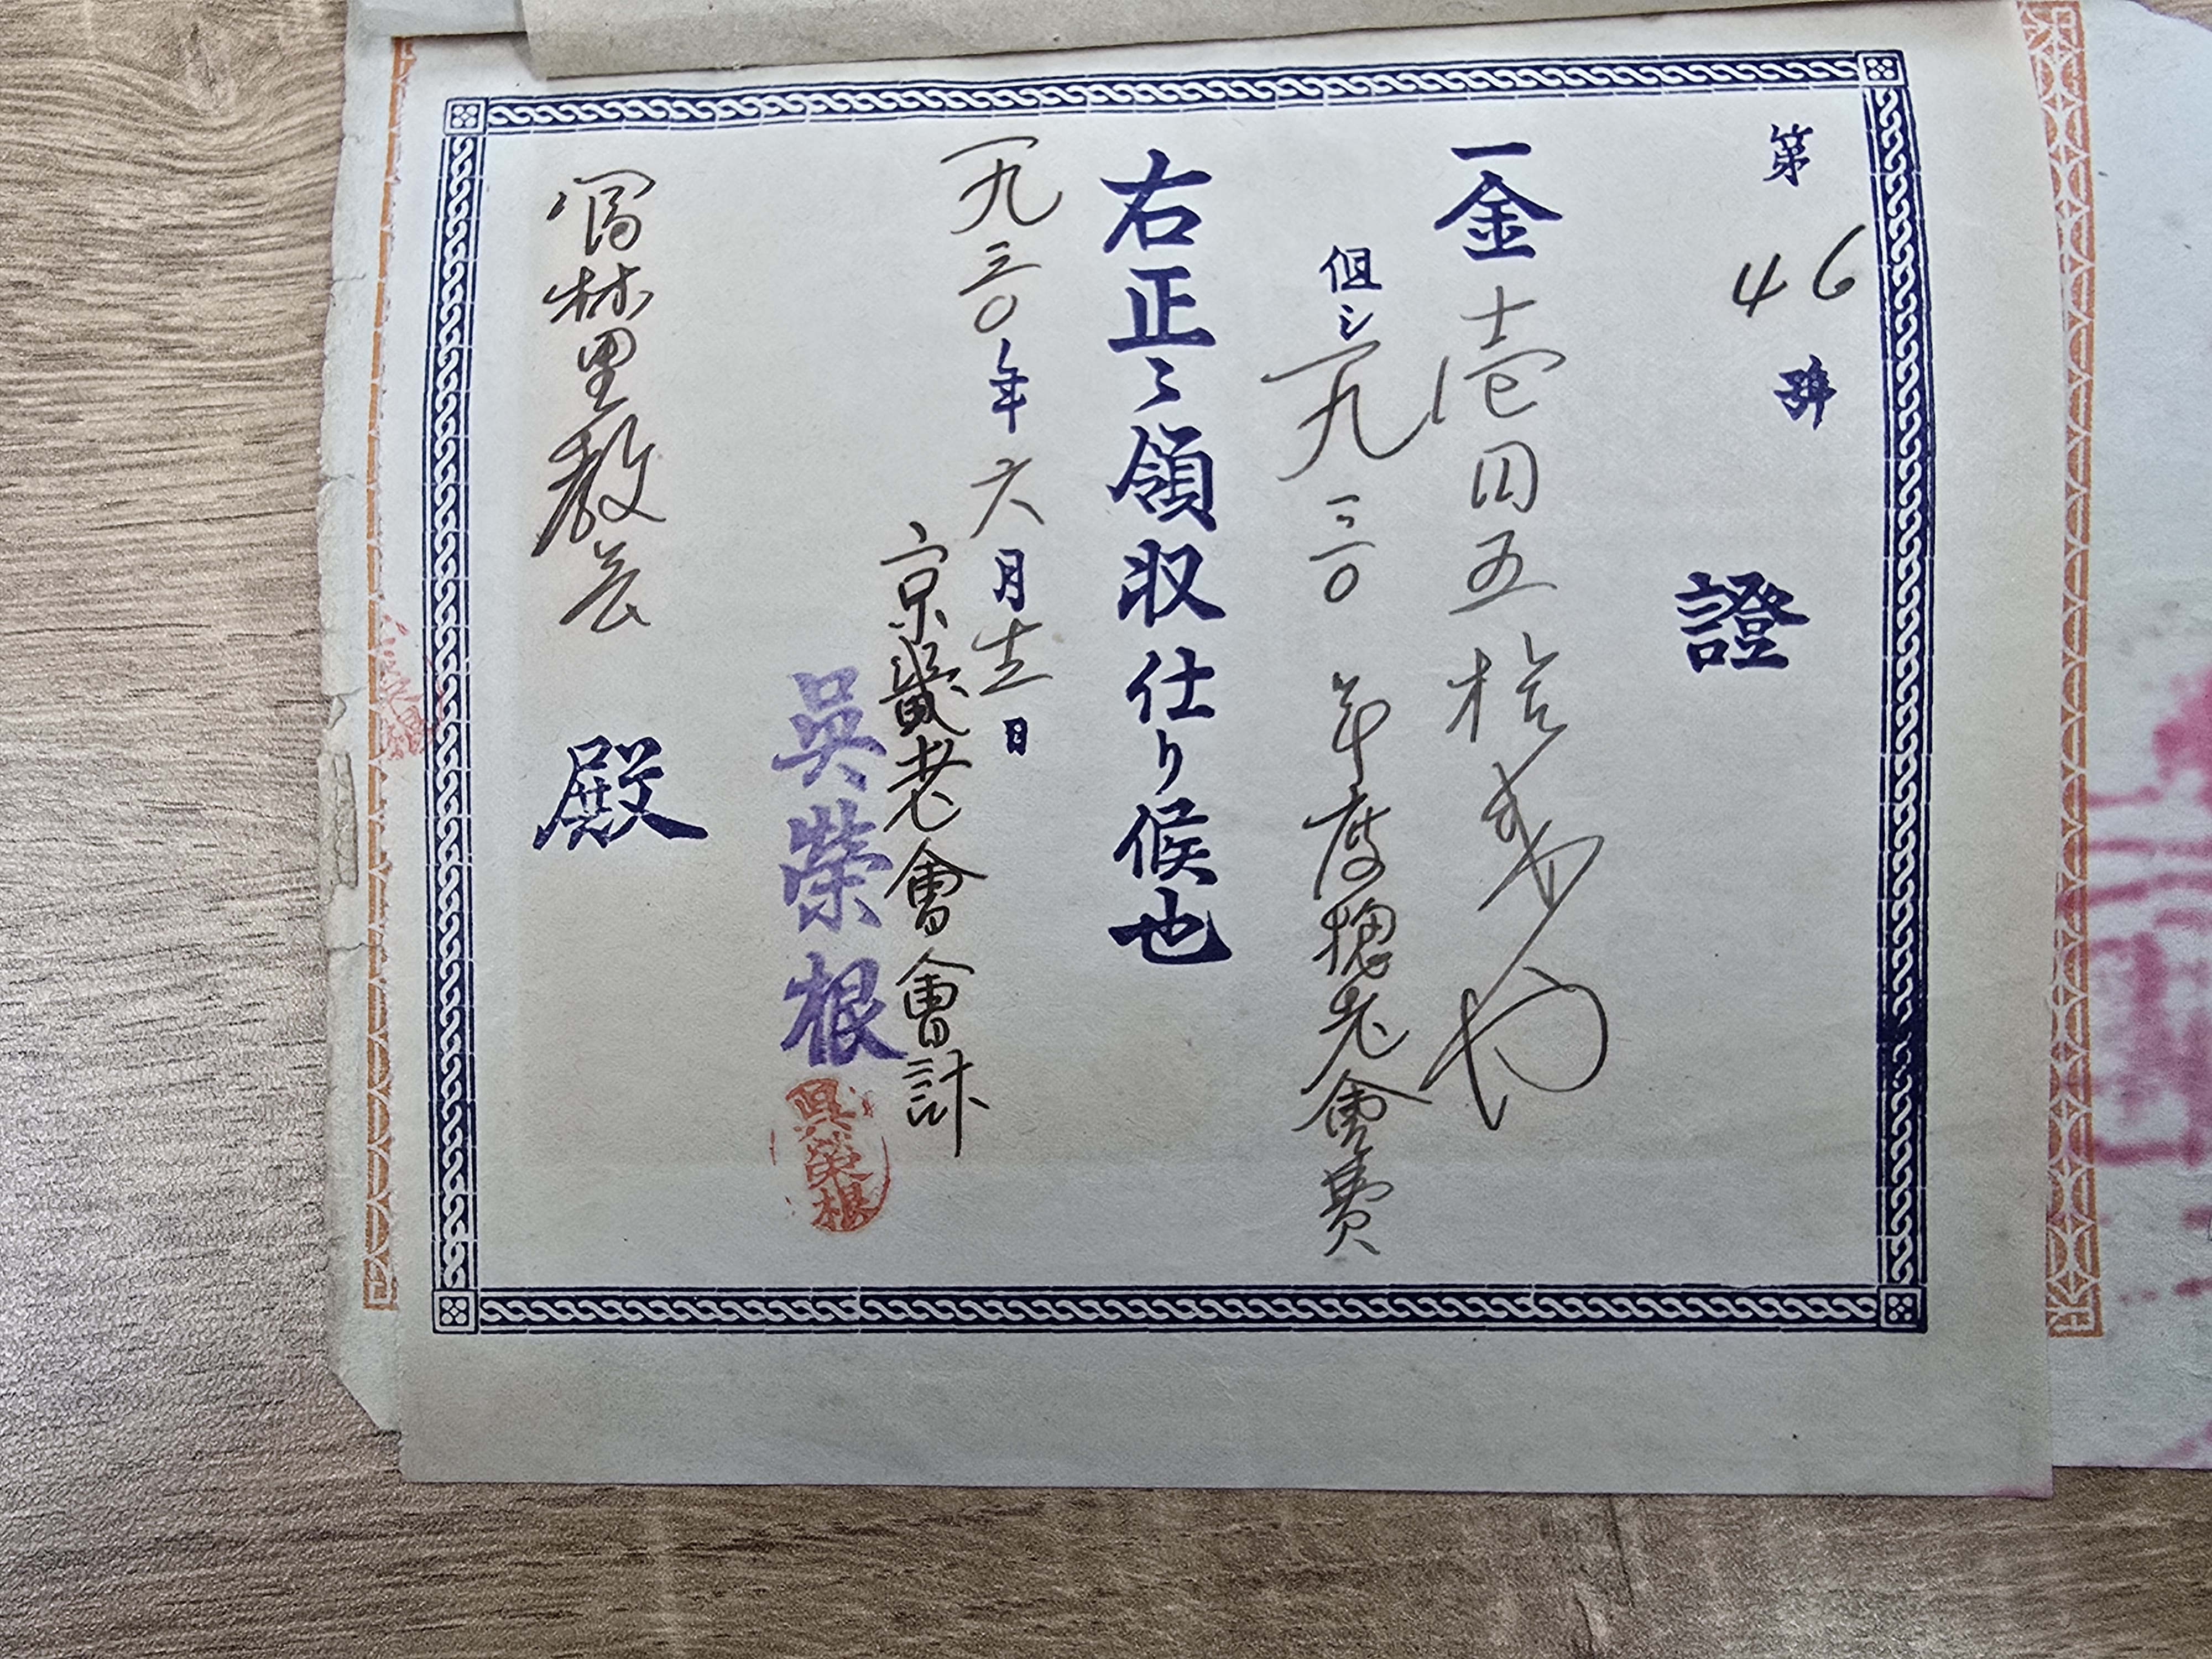 第46號
證
一金壹円五拾戋也
但シ一九三〇年度摠老會費
右正ニ領収仕リ候也
一九三〇年六月 日
京畿老會會計
吳榮根
吳榮根
林里教会 殿